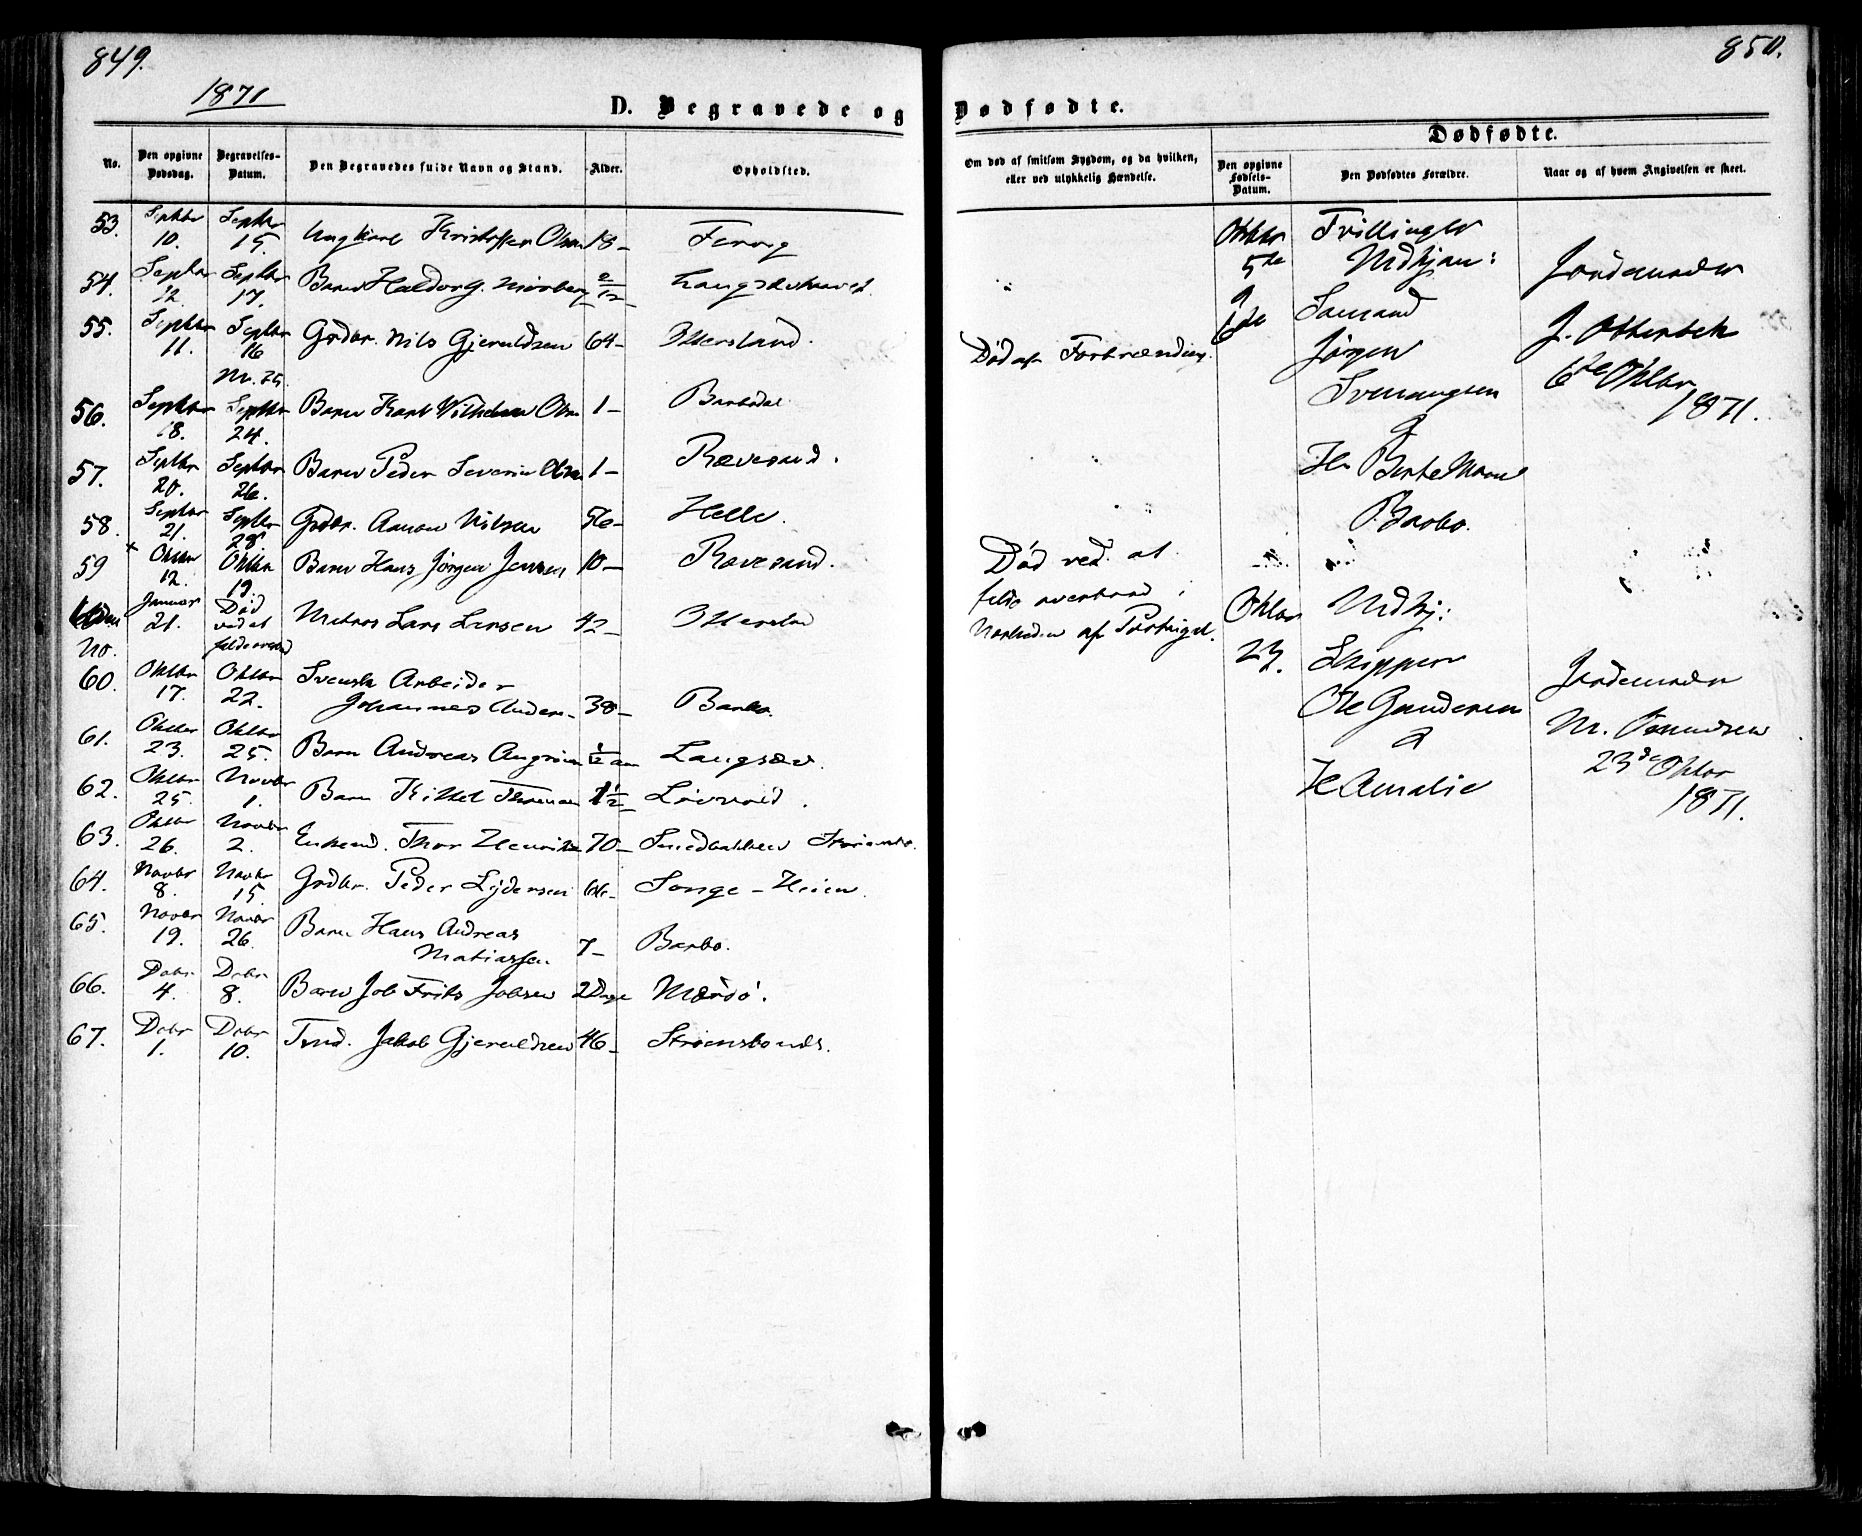 849.
1871
D. Begravede og
No.
Den opgivne Dødsdag.
Begravelses-Datum.
Den Begravedes fulde Navn og Stand.
Alder.
Opholdsted.
53. Septbr 10. Septbr 15. Ungkarl Kristoffer Olsen 18 -
54. Septbr 12. Septbr 17. Barn 2/12
55. Septbr 11. Septbr 16 Grdbr. Nils Gjeruldsen 64 -
56. Septbr 18. Septbr 24. Barn Karl Vilhelm Olsen 1 - Barbodal
57. Septbr 20. Septbr 26. Barn Peder Severin Olsen 1 - Rævesand.
58. Septbr 21. Septbr 28 Grdbr. Aanon Nilsen 56 - Helle.
59 Oktbr 12. Oktbr 19. Barn Hans Jørgen Jensen 10 - Rævesand.
Uden No. Januar 21. Død ved at falde overbord Matros Lars Larsen 42 -
60. Oktbr 17. Oktbr 22. Svensk Arbeider
Johannes Anders. 38 - Barbo.
61. Oktbr 23. Oktbr 25. Barn Andreas 1/12 Langsæv.
62. Oktbr 25. Novbr 1. Barn Kittel 1 1/2
63. Oktbr 26. Novbr 2. Enkemd. Thor Henrik 70 - Smedbakken
64. Novbr 8. Novbr 15. Grdbr. Peder Lydersen 66 - Songe - Heien.
65. Novbr 19. Novbr 26. Barn Hans Andreas
Matiassen. 7 - Barbo.
66. Dcbr 4. Dcbr 8. Barn Job Frits Jobsen 2 Dage Mærdø.
67. Dcbr 1. Dcbr 10. Tmd. Jakob Gjeruldsen 46 - Strømsbunds.
850.
Dødfødte.
Dødfødte.
Om død af smitsom Sygdom, og da hvilken, eller ved ulykkelig Hændelse.
Den opgivne Fødsels-Datum.
Den Dødfødtes Forældre.
Naar og af hvem Angivelsen er skeet.
Død af Forbrænding.
Død ved at
falde overbord i
Nærheden af Portugal.
Oktbr
5te
&
6te
Tvillinger
Udkjøn:
Jørgen
&
H. Berte Marie
Barbo.
Jordemoder
J. Otterbek
6te Oktbr
1871.
Oktbr
23.
Udkj:
Skipper
Ole Gundersen
&
H Amalie
Jordemoder
M. Osmundsen
23de Oktbr
1871.